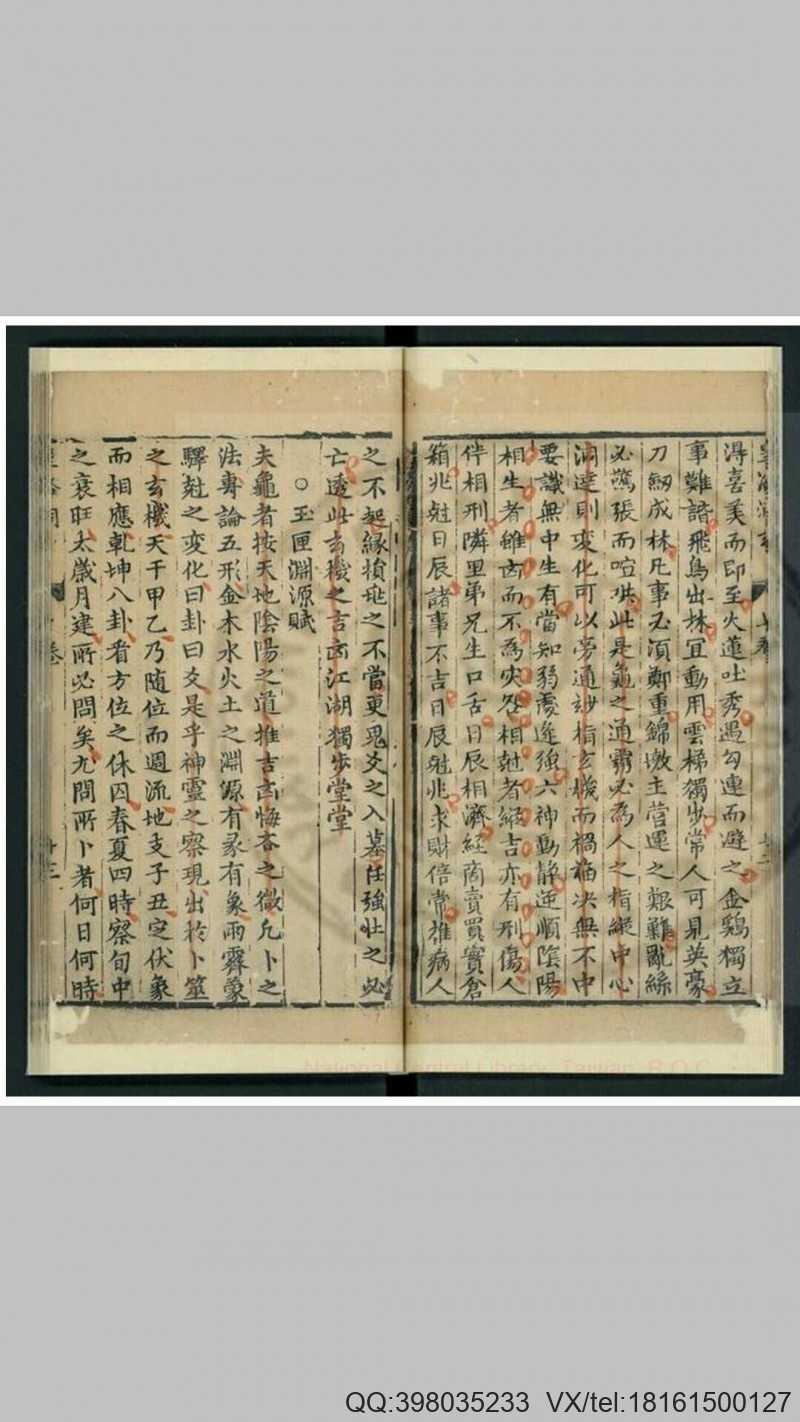 淂喜美而即至火蓮吐秀遇勾連而避之金鷄獨立
事難諧飛鳥出林宜動用雲梯獨步常人可見英豪
刀劒成林凡事必湏鄭重錦繳主營運之艱難亂絲
必驚張而喧此是龜之通霸必為人之指縱中心
洞達則變化可以旁通妙指玄機而禍福决無不中
要識無中生有當知弱處逢強六神動静逆順陰陽
相生者雖凶而不為灾怨相尅者縱吉亦有刑傷人
伴相刑隣里弟兄生口舌日辰相濟經商賣買實倉
箱兆尅日辰諸事不吉日辰尅兆求財倍常雅病人
之不起緣損班之不當更鬼爻之入墓任強壯之必
亡透此玄機之吉凶江湖獨步堂堂
○玉匣淵源賦
夫龜者按天地陰陽之道推吉凶悔吝之徵凢卜之
法専論五形金木水火土之淵源有彖有象雨霽蒙
驛尅之變化曰卦曰爻是乎神靈之察現出於卜筮
之玄機天干甲乙乃随位而週流地支子丑定伏象
而相應乾坤八卦看方位之休囚春夏四時察旬中
之衰旺太歲月建所必問矣凢問所卜者何日何時
卷
廿三
National Central Library, Taiwan, R.O.C.
QQ:398035233 VX/tel:18161500127